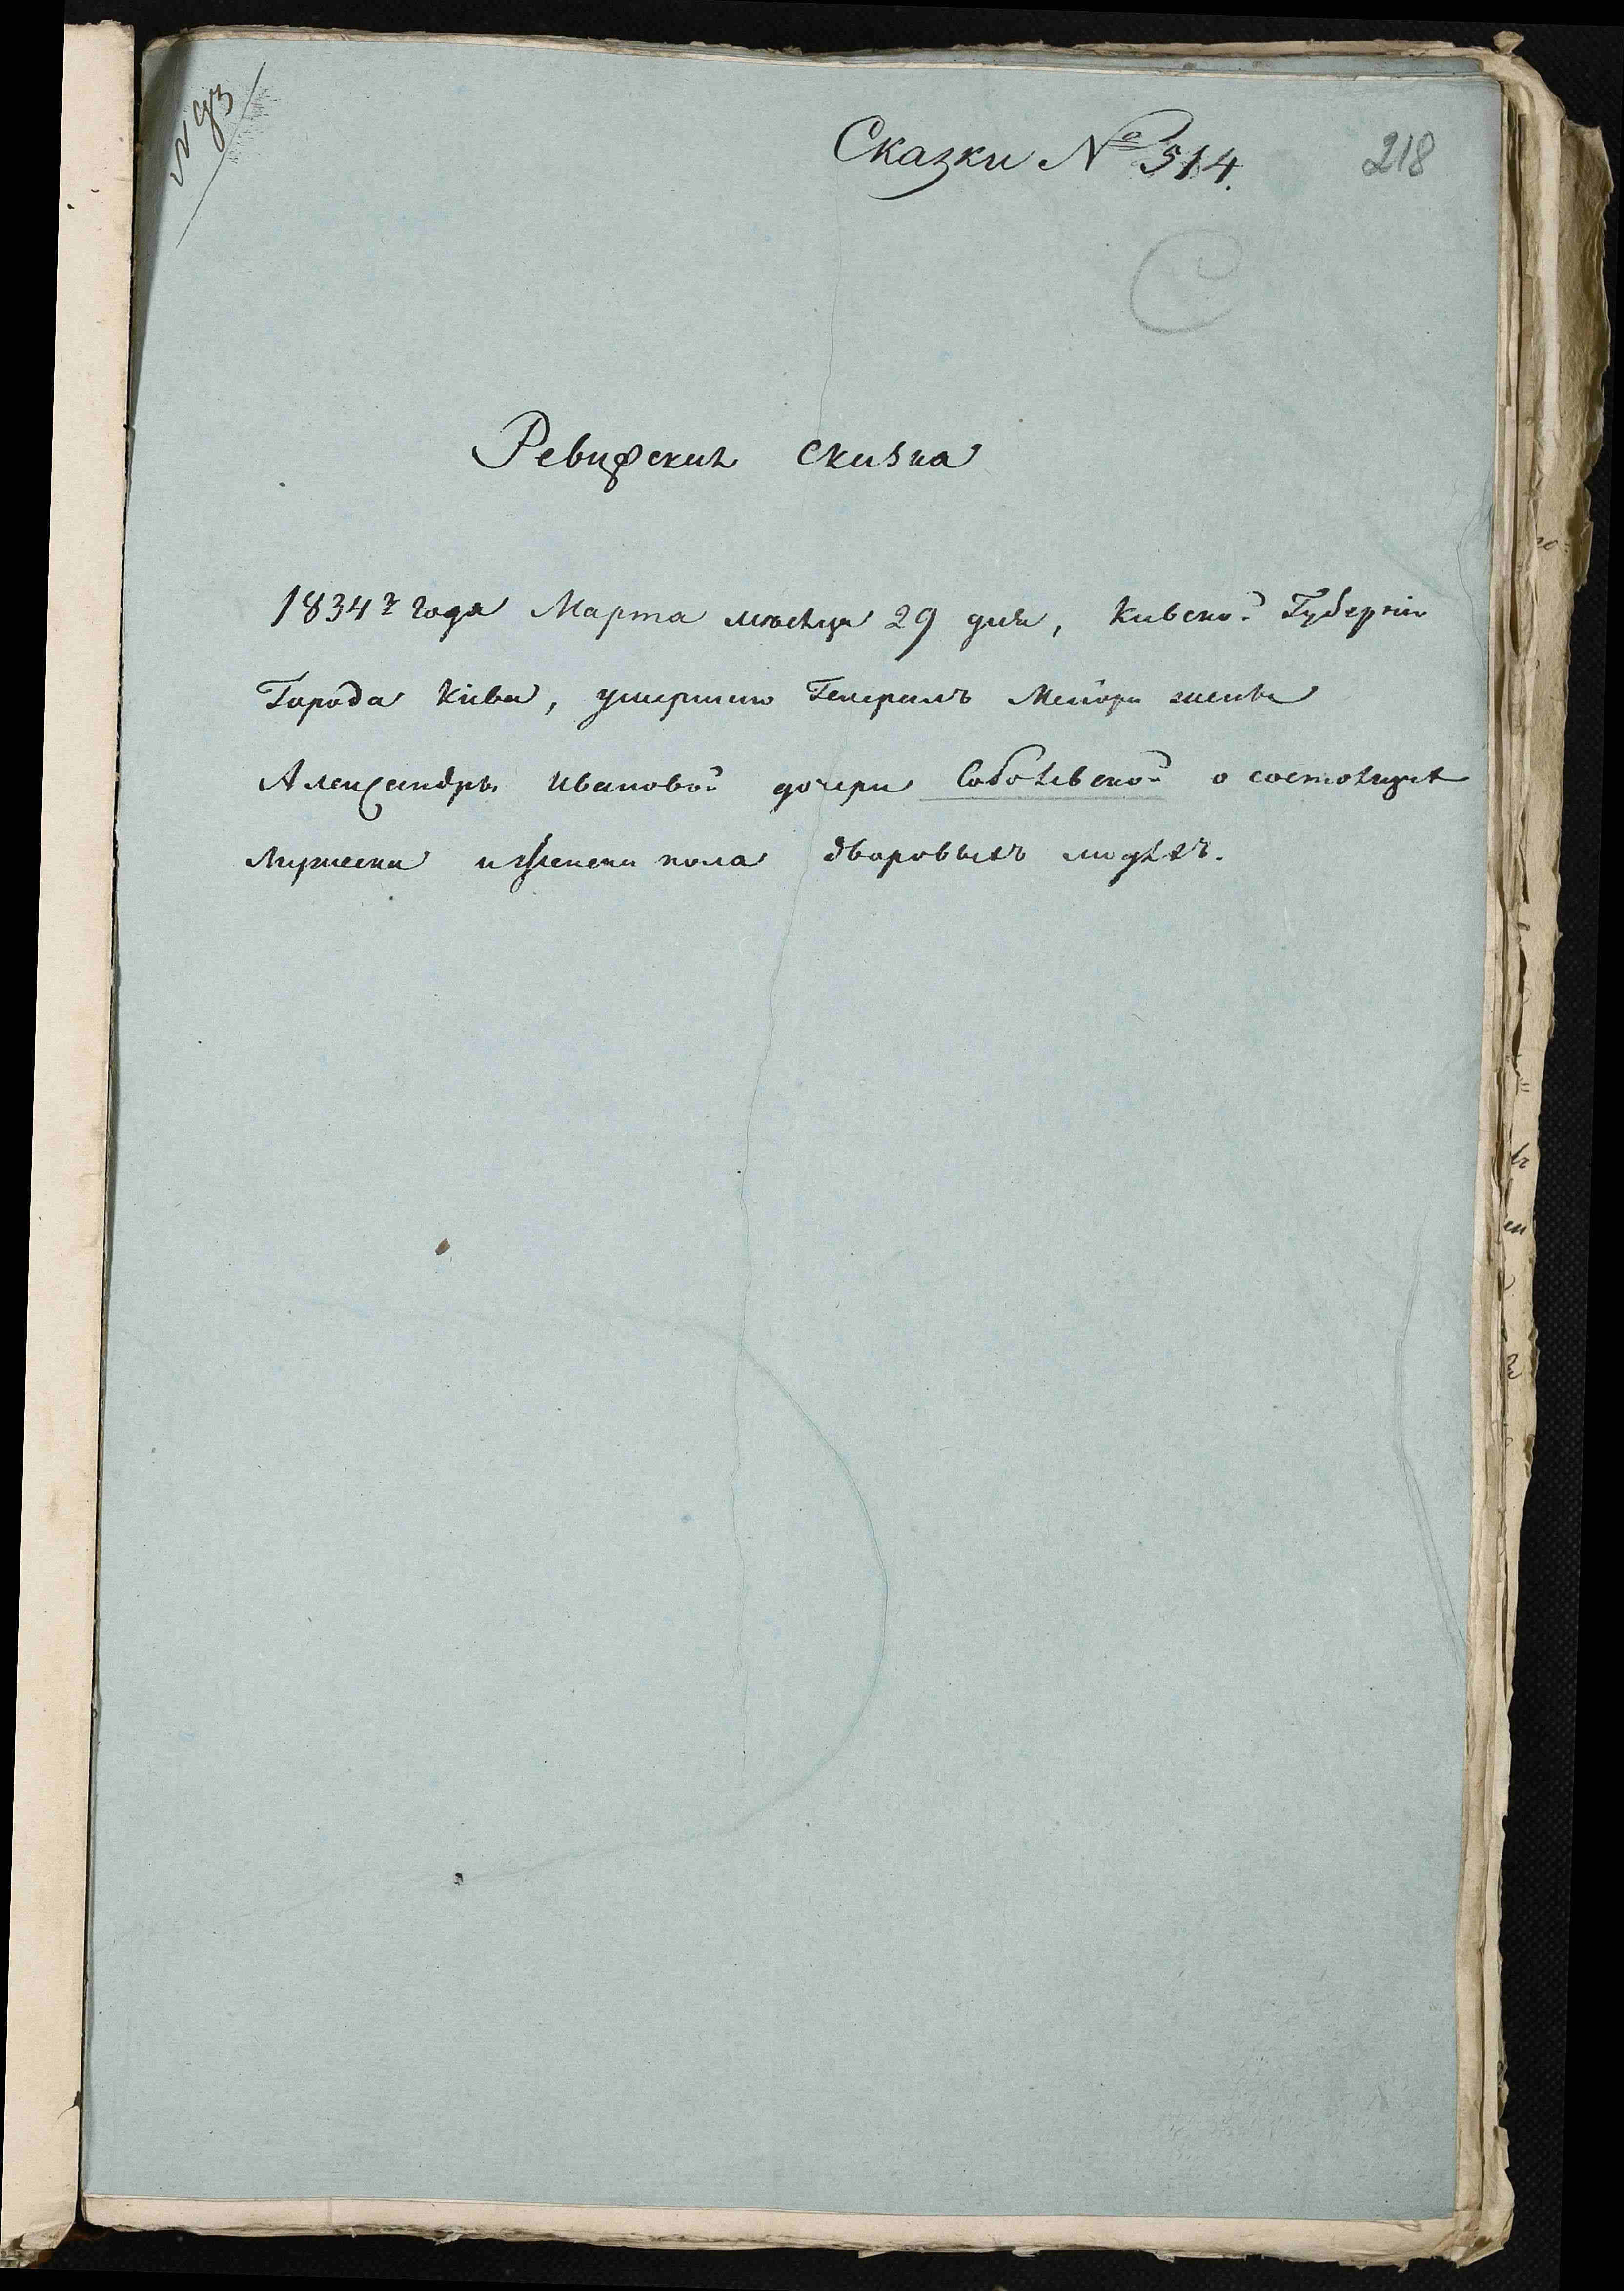 N 93
Сказки № 514.
218
Ревизская сказка
1834г года Марта месяца 29 дня, Кивской Губерніи
Города Кіева, умершаго Генералъ Маіора жены
Александры Ивановой дочери Соболевской о состоящихъ
Мужеска и женска пола дворовыхъ людяхъ.